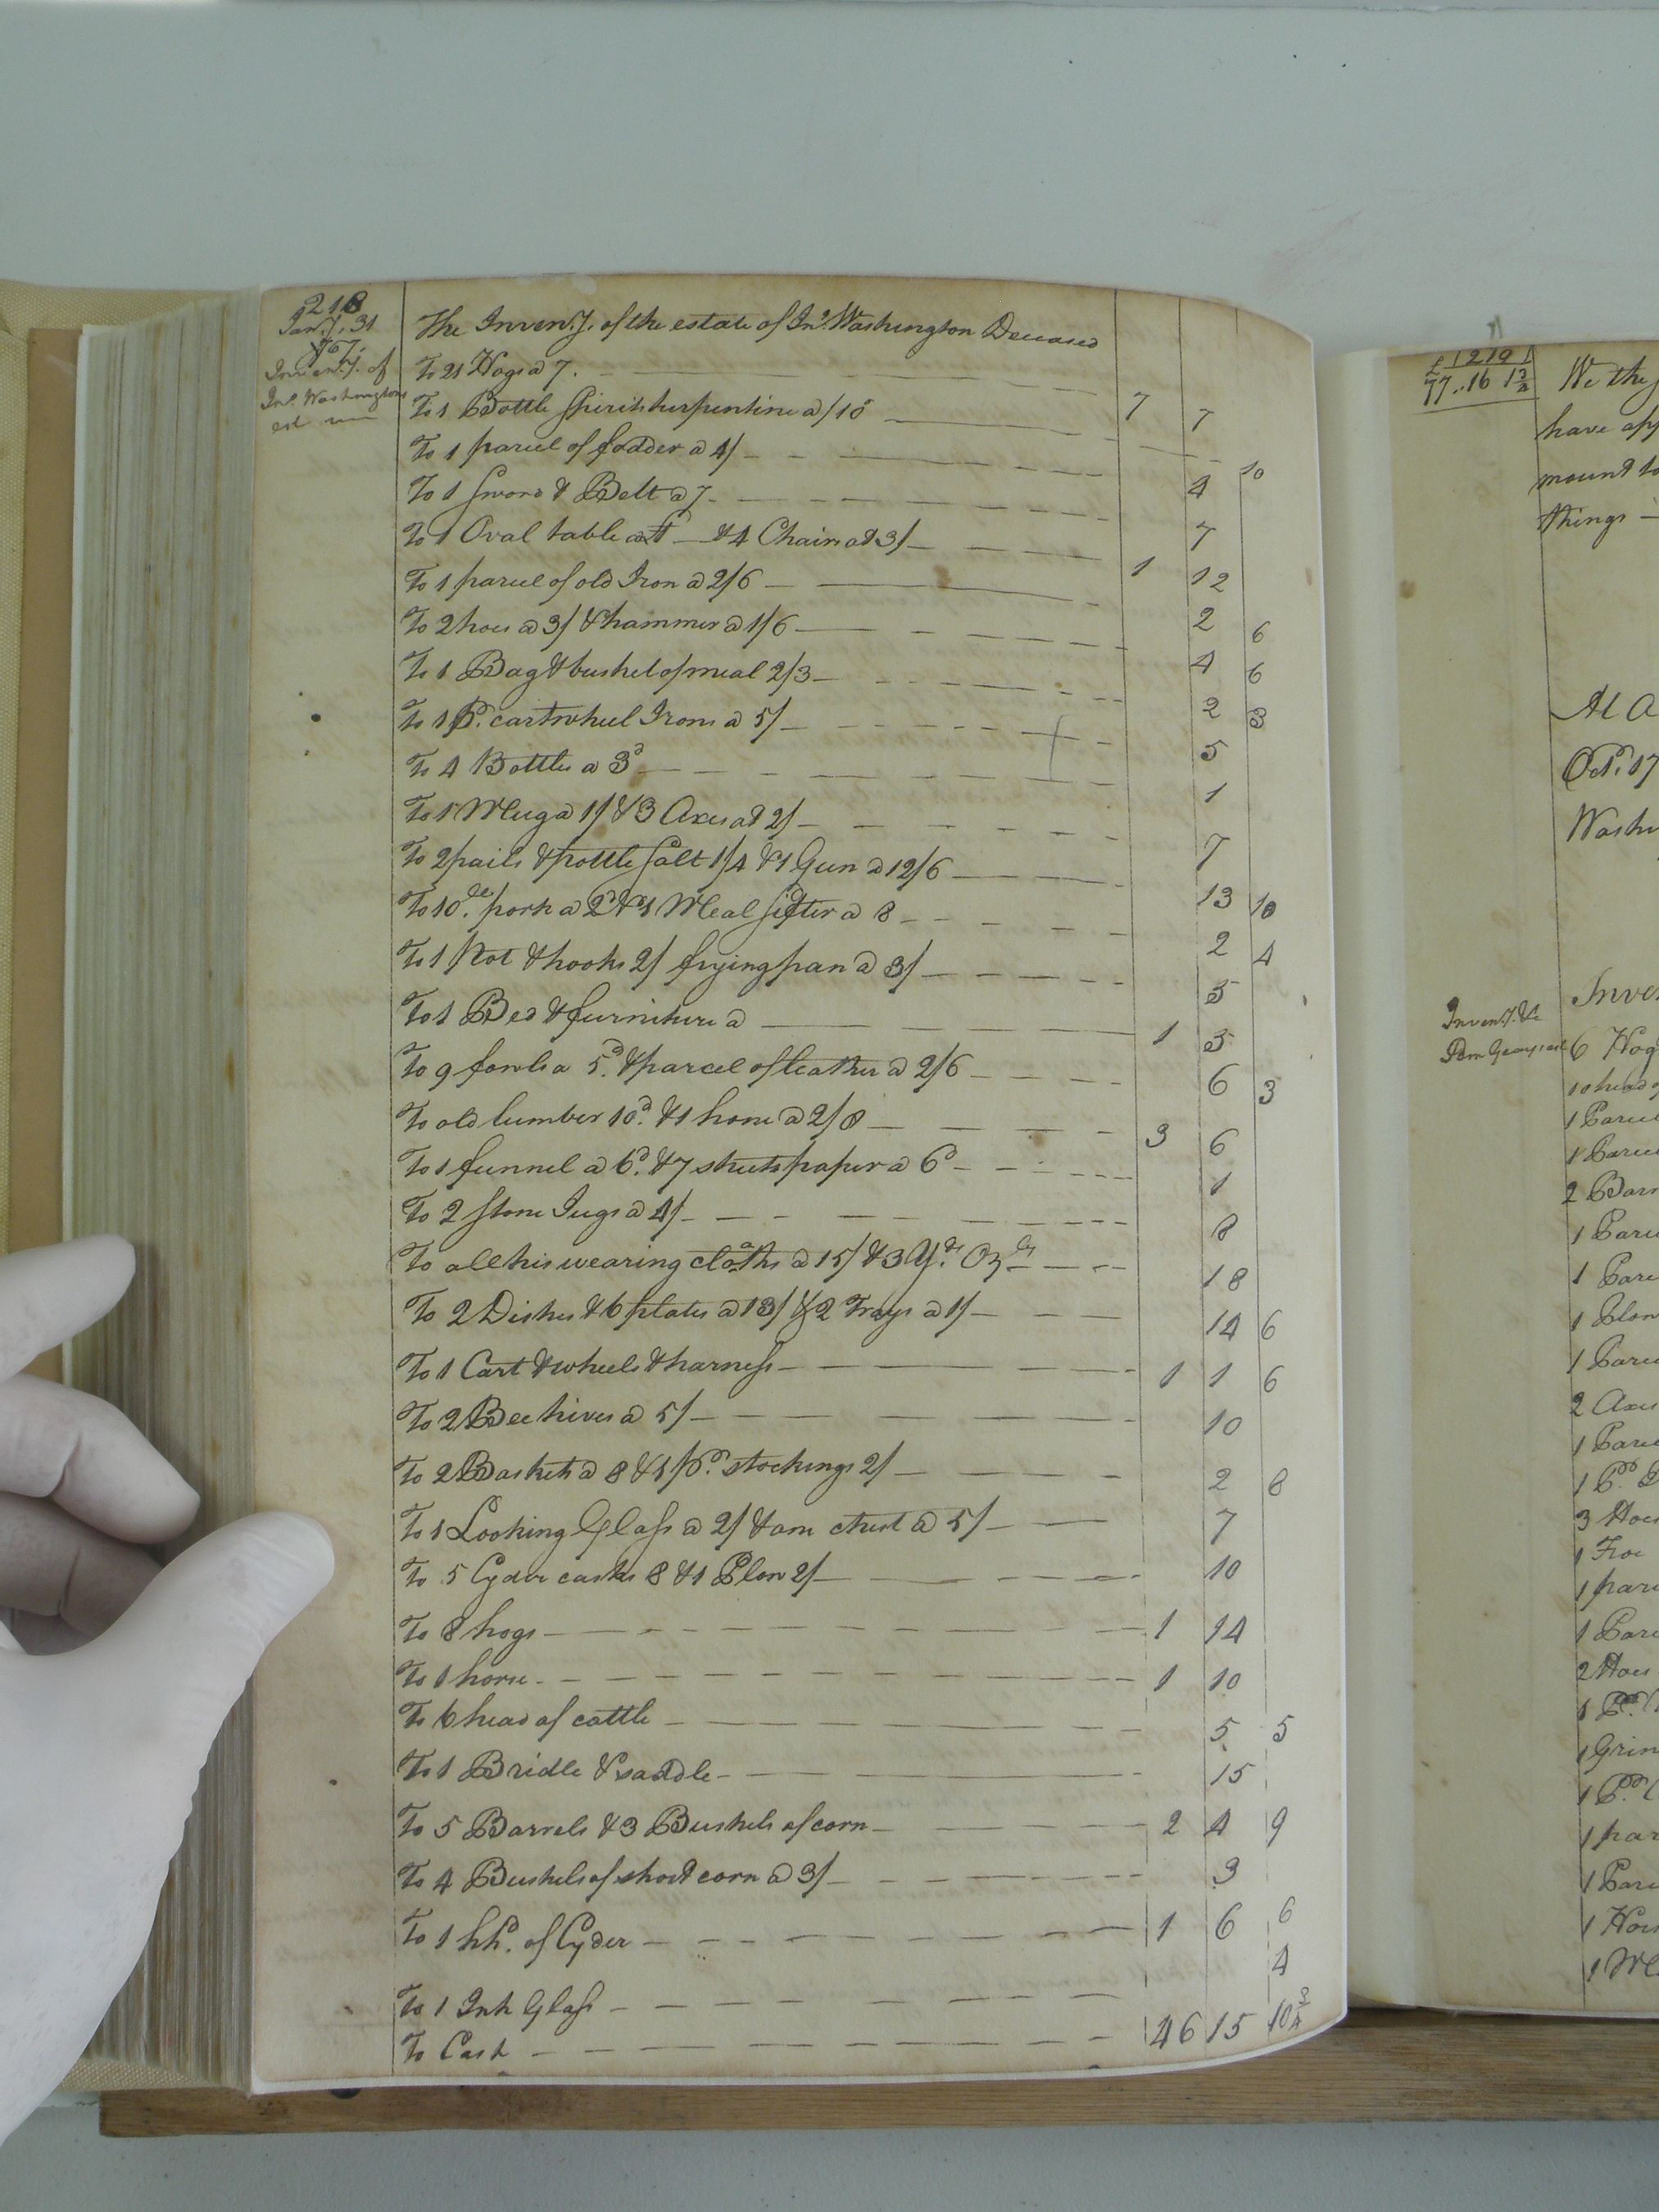 218
Jany. 31
767.
Inventy. of
Jno. Washingtons
est
The Inventy. of the estate of Jno. Washington Deceased
To 21 Hogs a 7. 7 7
To 1 Bottle spirits turpentine a /10 10
To 1 parcel of fodder a 4/ 4
To 1 sword & Belt a 7 7
To 1 Oval table at & 4 Chairs at 3/ 1 12
To 1 parcel of old Iron a 2/6 2 6
To 2 hoes a 3/ & hammer a 1/6 4 6
To 1 Bag & bushel of meal 2/3 2 3
To 1 Pr. cartwheel Irons a 5/ 5
To 4 Bottles a 3d 1
To 1 Mug a 1/ & 3 Axes at 2/ 7
To 2 pails & pottle salt 1/4 & 1 Gun a 12/6 13 10
To 10 lb. pork a 2d & 1 Meal sifter a 8 2 4
To 1 Pot & hooks 2/ frying pan a 3/ 5
To 1 Bed & furniture a 1 5
To 9 fowls a 5d. & parcel of leather a 2/6 6 3
To old lumber 10d. & 1 hone a 2/8 3 6
To 1 funnel a 6d. & 7 sheets paper a 6d 1
To 2 stone Jugs a 4/ 8
To all his wearing cloaths a 15/ & 3 Yds. Ozs 18
To 2 Dishes & 6 plates a 13/ & 2 Trays a 1/ 14 6
To 1 Cart & wheels & harness 1 1 6
To 2 Bee hives a 5/ 10
To 2 Baskets a 8 & 1 pr. stockings 2/ 2 8
To 1 Looking Glass a 2/ & one chest a 5/ 7
To 5 Cyder casks 8 & 1 Plow 2/ 10
To 8 hogs 1 14
To 1 horse 1 10
To 6 head of cattle 5 5
To 1 Bridle & saddle 15
To 5 Barrels & 3 Bushels of corn 2 4 9
To 4 Bushels of short corn a 3/ 3
To 1 hhd. of Cyder 1 6 6
To 1 Ink Glass 4
To Cash 46 15 10 3/4
219
£
77..16 1 3/4
We the
have app
mount to
things
At a
Octr. 17
Washi
Inventy. &c
Inven
6 Hog
10 head of
1 Parce
1 Parce
2 Barr
1 Parce
1 Parc
1 Plow
1 Parce
2 Axes
1 Parce
1 Pr.
3 Hoes
1 Froe
1 parc
1 Parc
2 Hoes
1 Pr.
1 Grin
1 Pr.
1 par
1 Parc
1 Hors